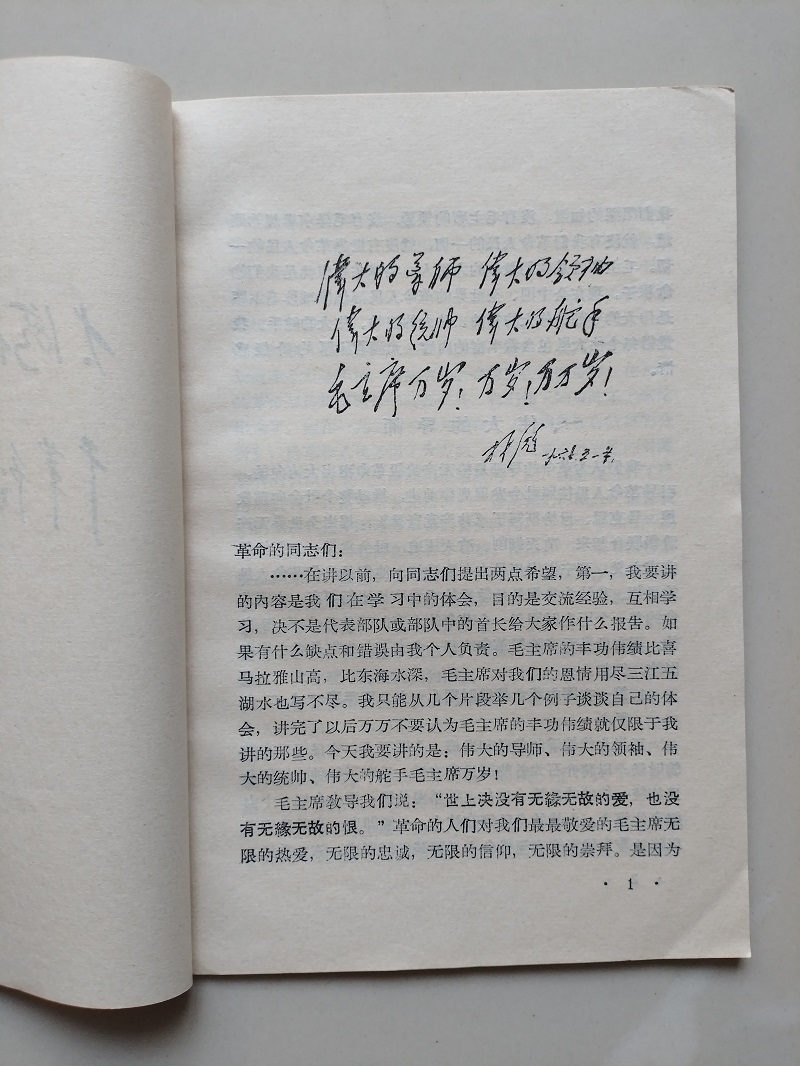 偉大的导师 偉大的领袖
偉大的统帅 偉大的舵手
毛主席万岁！万岁！万万岁！
林彪
革命的同志们：
……在讲以前，向同志们提出两点希望，第一，我要讲
的内容是我们在学习中的体会，目的是交流经验，互相学
习，决不是代表部队或部队中的首长给大家作什么报告。如
果有什么缺点和错误由我个人负责。毛主席的丰功伟绩比喜
马拉雅山高，比东海水深，毛主席对我们的恩情用尽三江五
湖水也写不尽。我只能从几个片段举几个例子谈谈自己的体
会，讲完了以后万万不要认为毛主席的丰功伟绩就仅限于我
讲的那些。今天我要讲的是：伟大的导师、伟大的领袖、伟
大的统帅、伟大的舵手毛主席万岁！
毛主席教导我们说：“世上决没有无緣无故的爱，也没
有无緣无故的恨。”革命的人们对我们最最敬爱的毛主席无
限的热爱，无限的忠诚，无限的信仰，无限的崇拜。是因为
· 1 ·